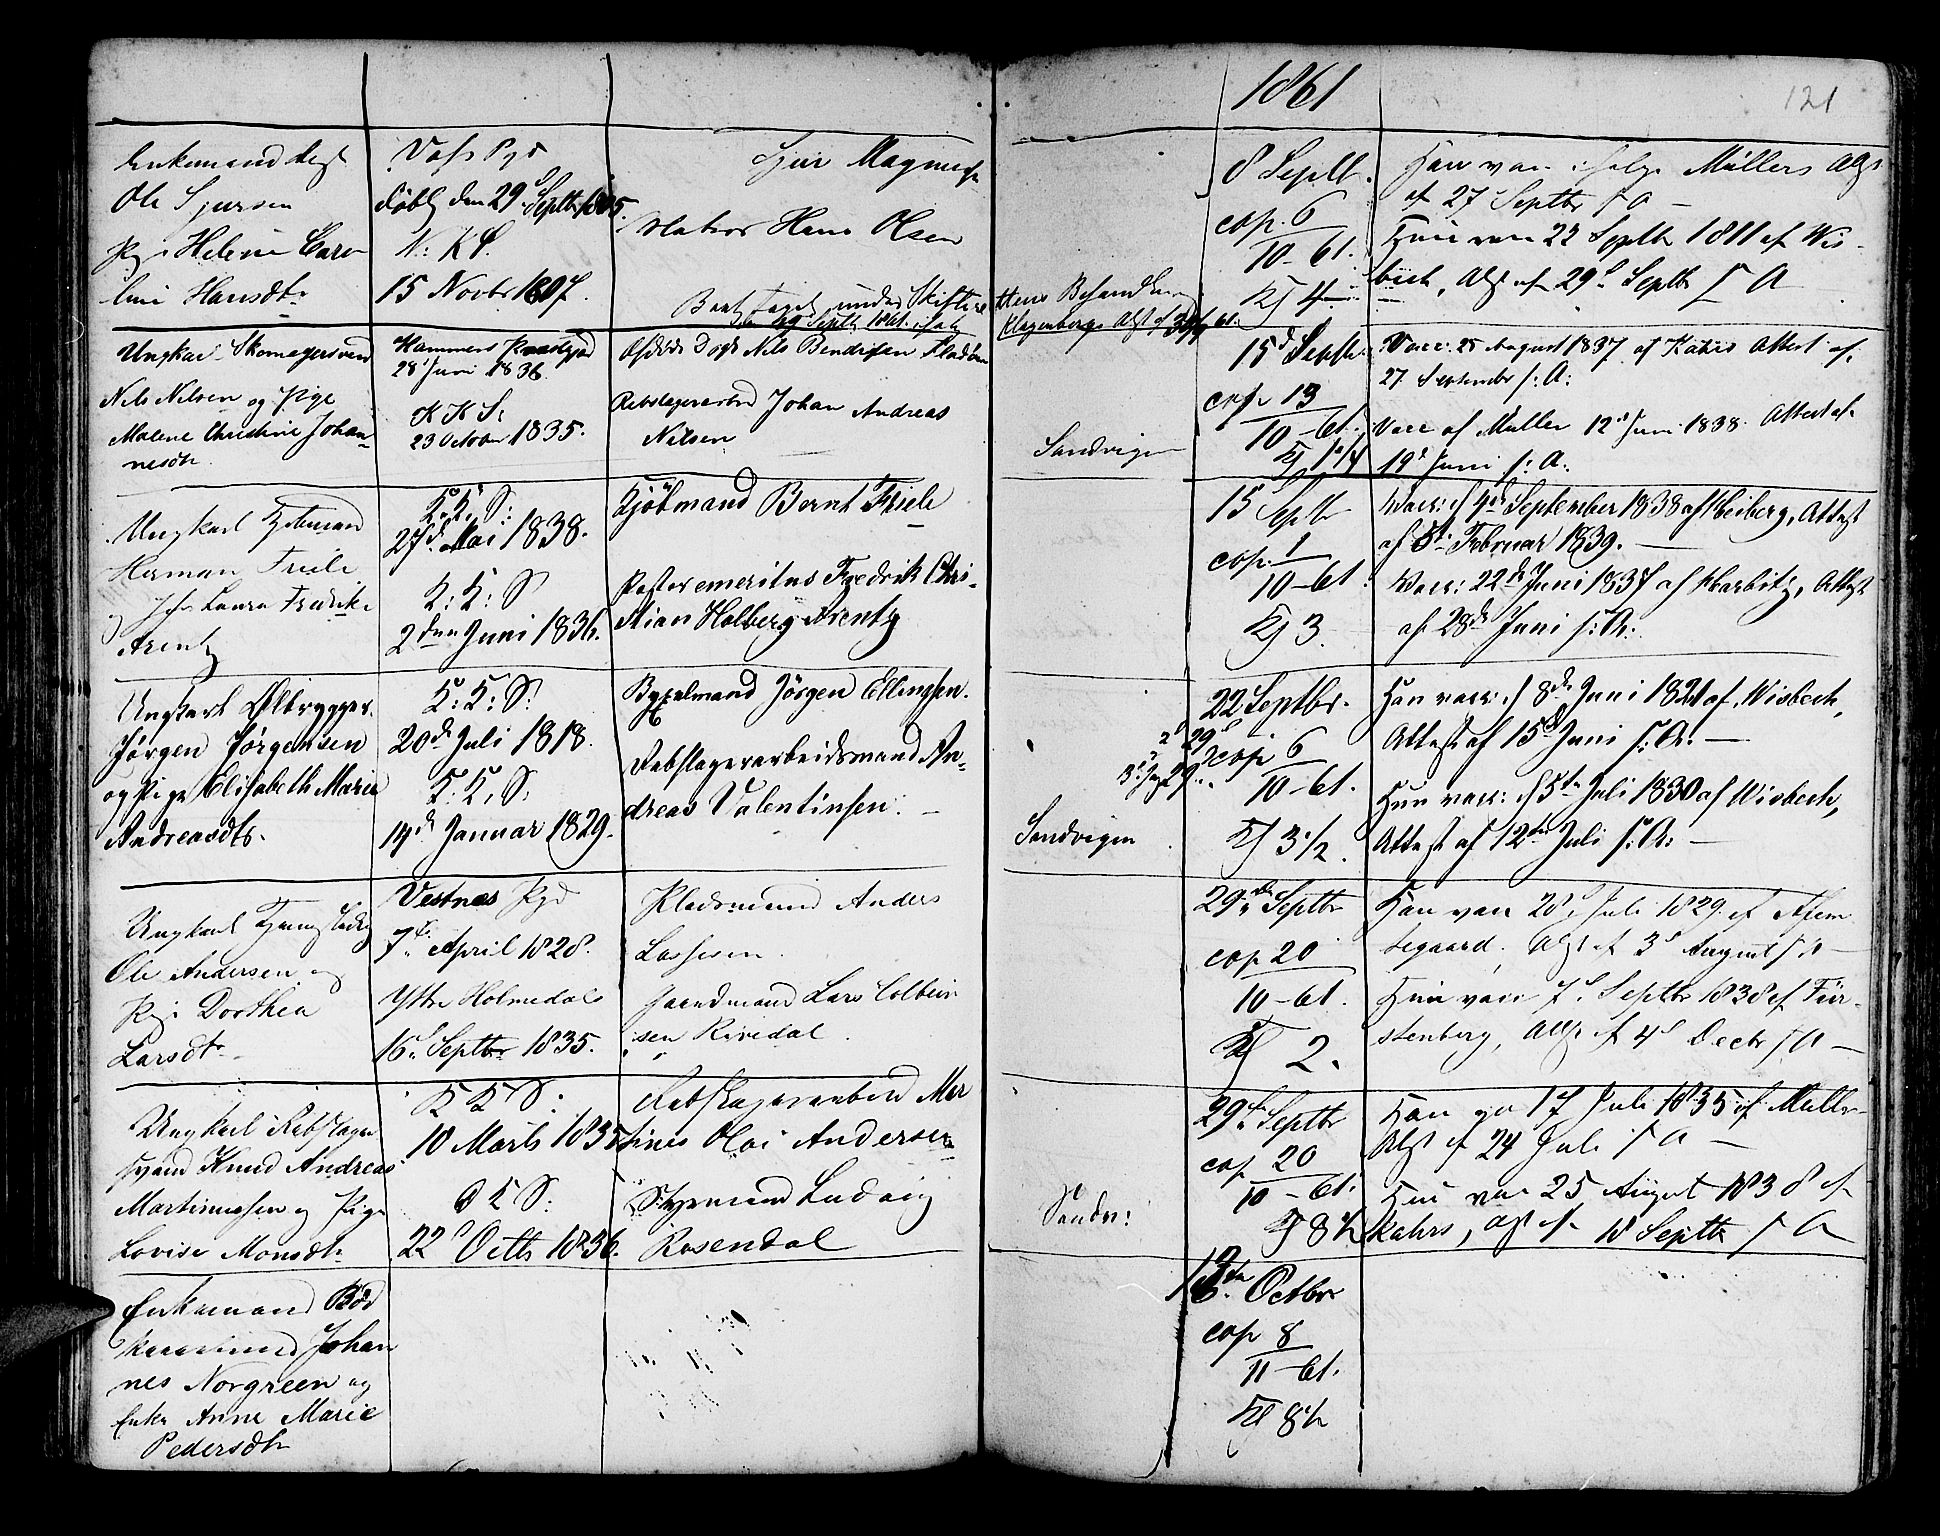 1861
121
Enkemand
Ole Sjursen
Pige Helene Caro-
line Hansdtr
Voss Pgd
døbt den 29d Septbr 1805.
N: K S.
15 Novbr 1807.
Sjur Magnus
Matros Hans Olsen
under Skifte
8 Septbr.
cop. 6
10-61.
Kj 4
Han vacc: ifølge Müllers Atst
af 27 Septbr s A
Hun vacc 22 Septbr 1811 af Wis-
bech, Atst af 29d Septbr s A
Ungkarl Skomagersvend
Nils Nilsen og Pige
Malene Christine Johan-
nesdtr.
Hammers Præstegjed
28d Juni 1836.
K K S:
23 October 1835.
Nils Bendixsen
Rebslagerarbd Johan Andreas
Nilsen
Sandvigen
15d Septbr
cop. 13
10-61.
Kj 1 1/4
Vacc: 25 August 1837 af Kahrs Attest af
27 September s: A:
Vacc af Müller 12d Juni 1838. Attest af
19d Juni s: A:
Ungkarl Kjøbmand
Herman Friele
og Jfr Laura Fredrikke
Arentz
K: K: S:
27d Mai 1838.
K: K: S:
2den Juni 1836.
Kjöbmand Bernt Friele
Pastor emeritus Fredrik Chri-
stian Holberg Arentz
15 Septbr
cop. 1
10-61
Kj 3.
Vacc: d 4de September 1838 af Heiberg, Attest
af 5t Februar 1839.
Vacc: 22de Juni 1837 af Harbitz, Attest
af 28de Juni s: A:
Ungkarl Ølbrygger.
Jørgen Jørgensen
og Pige Elisabeth Marie
Andreasdtr.
K: K: S:
20d Juli 1818.
K: K: S:
14d Januar 1829.
Bøxelmand Jörgen Ellingsen.
Rebslagerarbeidsmand An-
dreas Valentinsen.
Sandvigen
22 Septbr.
2d 29d
cop. 6
10-61.
Kj 3 1/2.
Han vacc: d 8de Juni 1821 af Wisbech,
Attest af 15d Juni s: A:
Hun vacc: d 5te Juli 1830 af Wisbech,
Attest af 12te Juli s: A:
Ungkarl
Ole Andersen og
Pige Dorthea
Larsdtr
Vestnæs Pgd
7de April 1828.
Ytre Holmedals
16d Septbr 1835.
Pladsmand Anders
Lassesen.
Gaardmand Lars Colbein-
sen Rivedal.
29de Septbr
cop 20
10-61.
Kj 2.
Han vacc 28d Juli 1829 af
Atst af 3d August s A
Hun vacc 7d Septbr 1838 af Für-
stenberg, Atst af 4d Decbr s A
Ungkarl Rebslager-
svend Knud Andreas
Martinussen og Pige
Lovise Monsdtr
K K S:
10 Marts 1835
D K S:
22d Octbr 1836.
Rebslagerarbeid Mar
tinus Olai Andersen
Styrmand Ludvig
Rosendal
Sandv:
29de Septbr
cop 20
10-61.
Kj 8 1/2
Han vac 17 Juli 1835 af Müller
Atst af 24 Juli s A
Hun vac 25 August 1838 af
Kahrs, Atst af 18 Septbr s A
Enkemand Bød
kersvend Johan
nes Norgreen og
Enke Anne Marie
Pedersdtr
13de Octbr
cop 8
11-61.
Kj 8 1/2